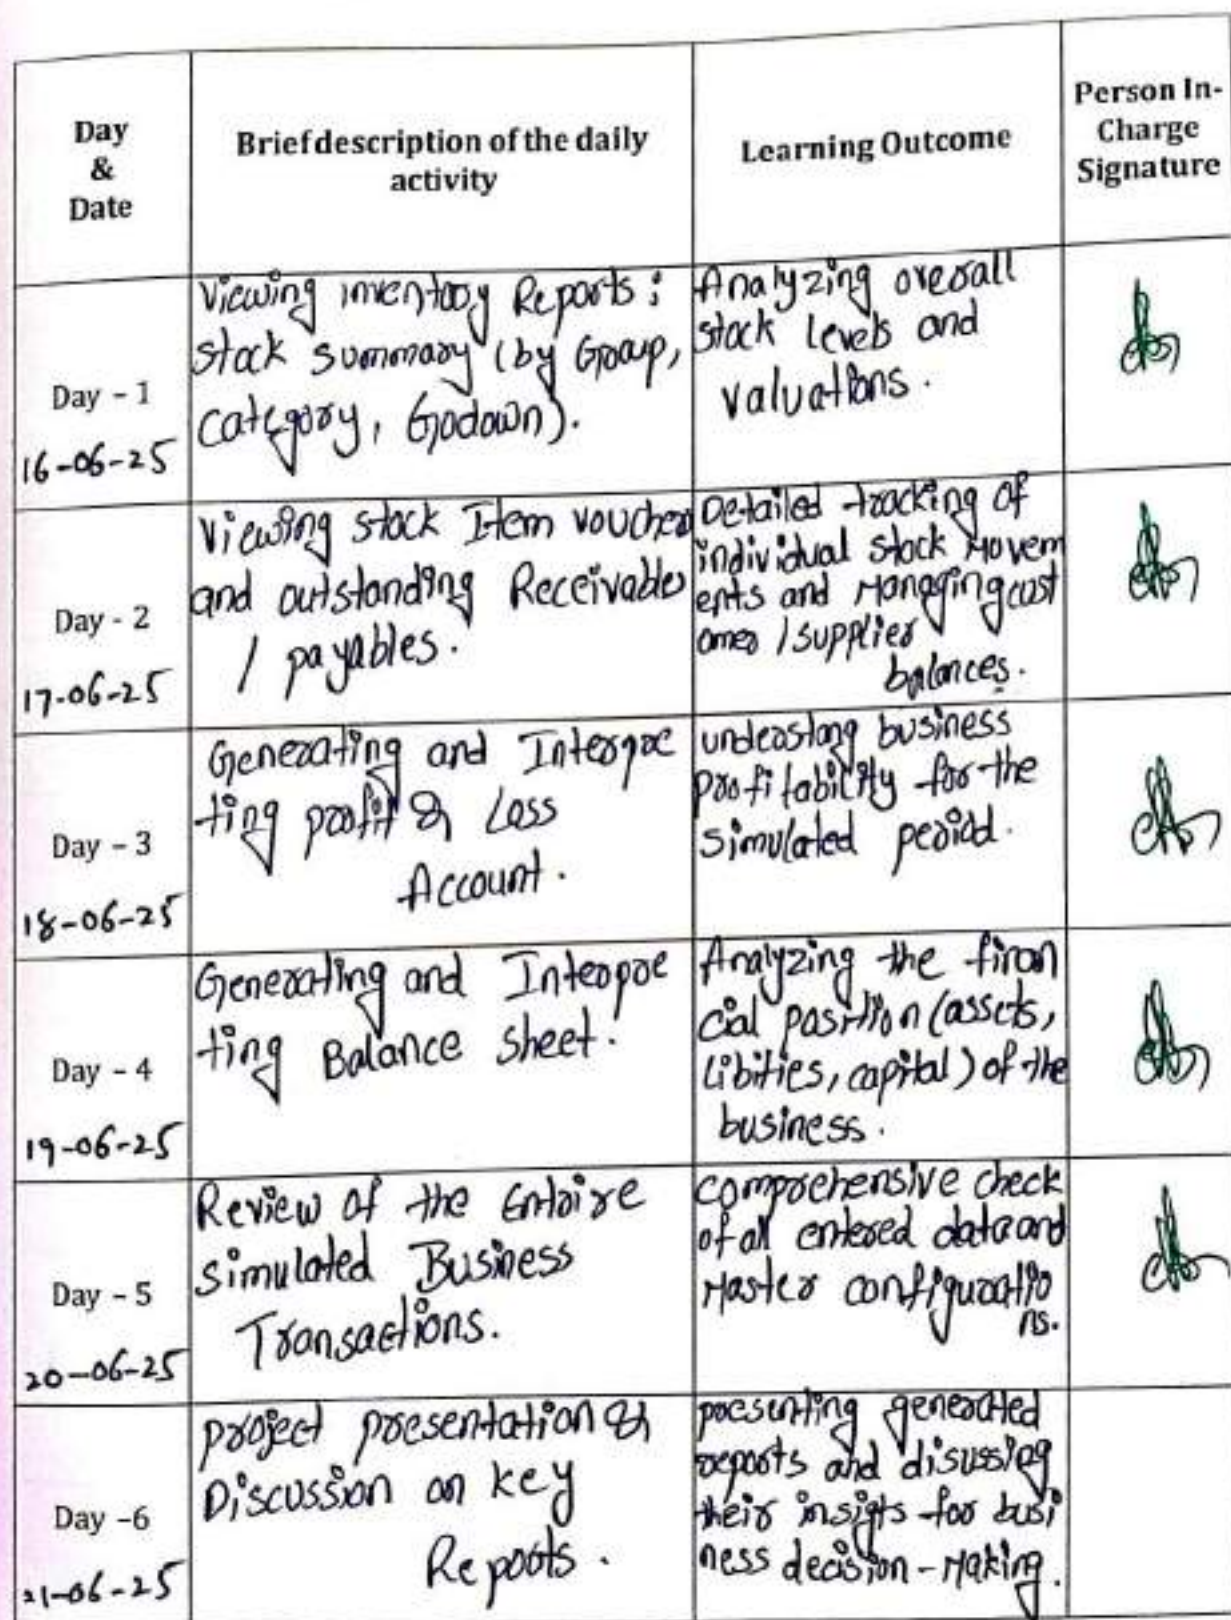 Day
&
Date
Brief description of the daily
activity
Learning Outcome
Person In-
Charge
Signature
Day - 1
16-06-25
Viewing inventory Reports:
stock summary (by Group,
Category, Godown).
Analyzing overall
stock levels and
valuations.
Day - 2
17-06-25
Viewing stock Item vouchers
and outstanding Receivables
/ payables.
Detailed tracking of
individual stock Movem
ents and Managing cust
omer / supplier
balances.
Day - 3
18-06-25
Generating and Interpre
ting profit & Loss
Account.
understang business
profitability for the
simulated period.
Day - 4
19-06-25
Generating and Interpre
ting Balance sheet.
Analyzing the finan
cial position (assets,
libities, capital) of the
business.
Day - 5
20-06-25
Review of the Entire
simulated Business
Transactions.
comprehensive check
of all entered data and
Master configuratio
ns.
Day -6
21-06-25
project presentation &
Discussion on key
Reports.
presenting generated
reports and disussing
their insigts for busi
ness decision-Making.